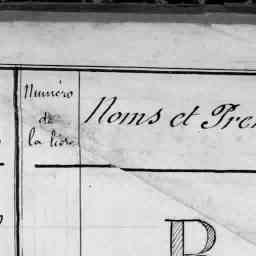 Numéro
de
la liste
Noms et Pre
B